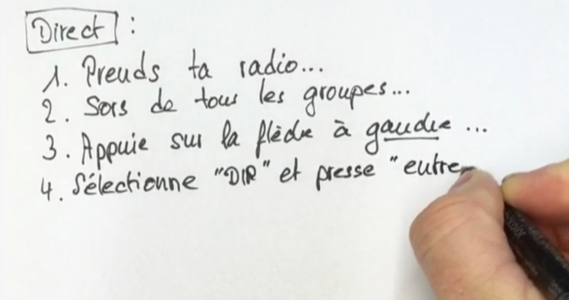 Direct :
1. Prends ta radio...
2. Sors de tous les groupes...
3. Appuie sur la flèche à gauche ...
4. Sélectionne "DIR" et presse "entre